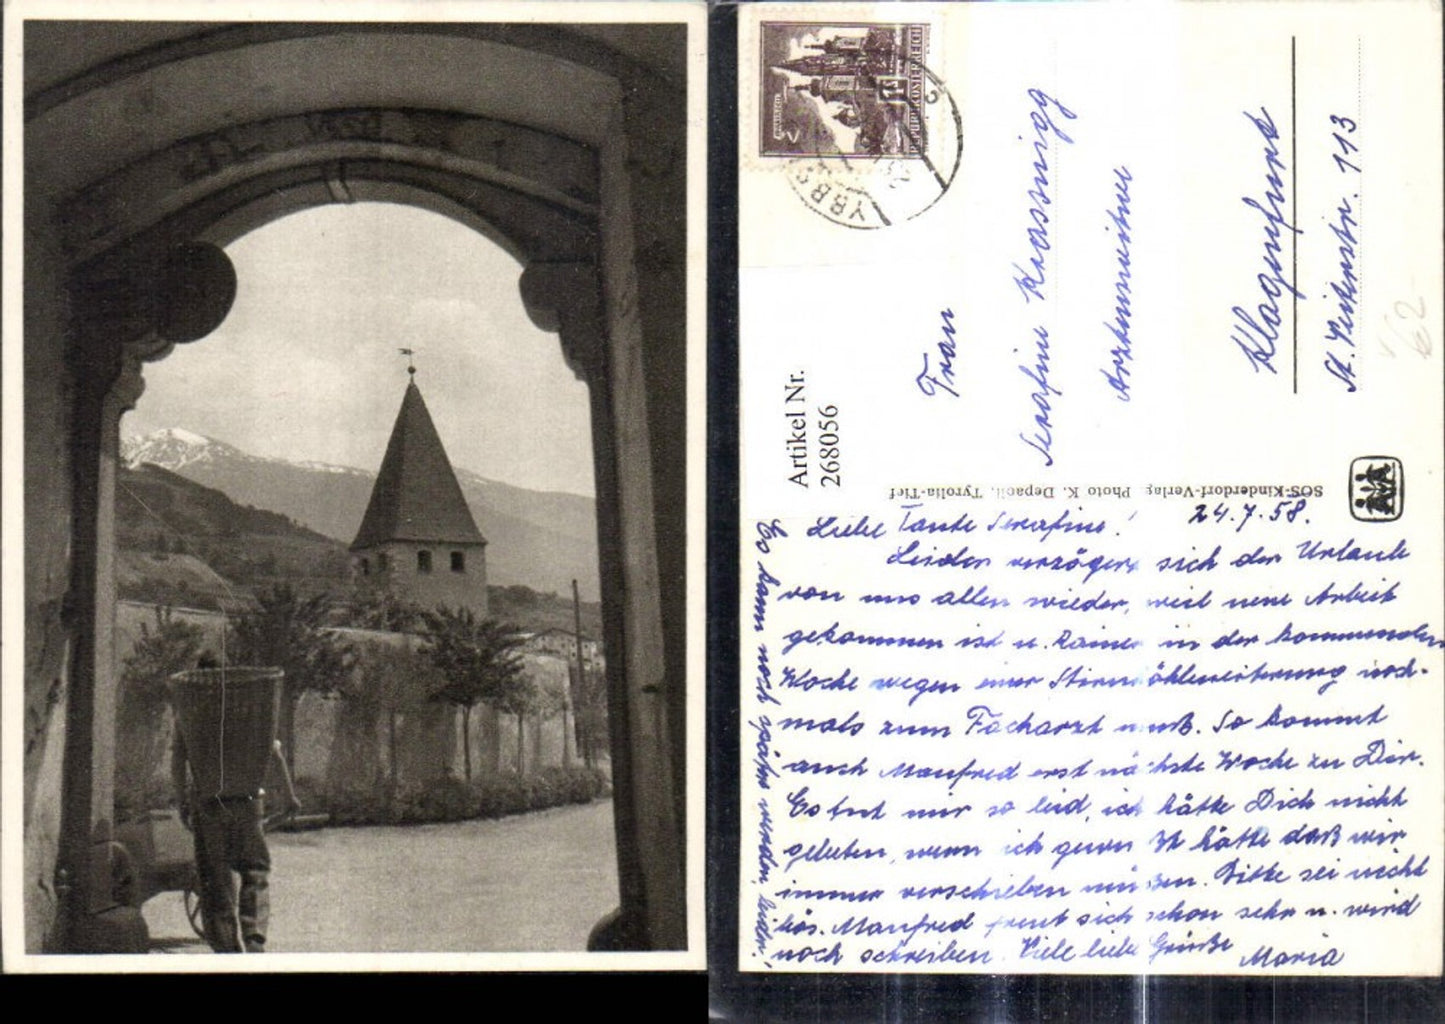 REPUBLIK ÖSTERREICH
YBBS
Artikel Nr.
268056
Frau
Serafine Krassnigg
Arztenswitwe
Klagenfurt
St. Veiterstr. 113
62
SOS-Kinderdorf-Verlag Photo K. Depaoli, Tyrolia-Tief
24.7.58.
Liebe Tante Serafine!
Leider verzögert sich der Urlaub
von uns allen wieder, weil neue Arbeit
gekommen ist u. Rainer in der kommenden
Woche wegen einer Stirnhöhleneiterung noch-
mals zum Facharzt muß. So kommt
auch Manfred erst nächste Woche zu Dir.
Es tut mir so leid, ich hätte Dich nicht
gebeten, wenn ich gewußt hätte daß wir
immer verschieben müssen. Bitte sei nicht
bös. Manfred freut sich schon sehr u. wird
noch schreiben. Viele liebe Grüße Maria
Es kann noch später werden, leider!